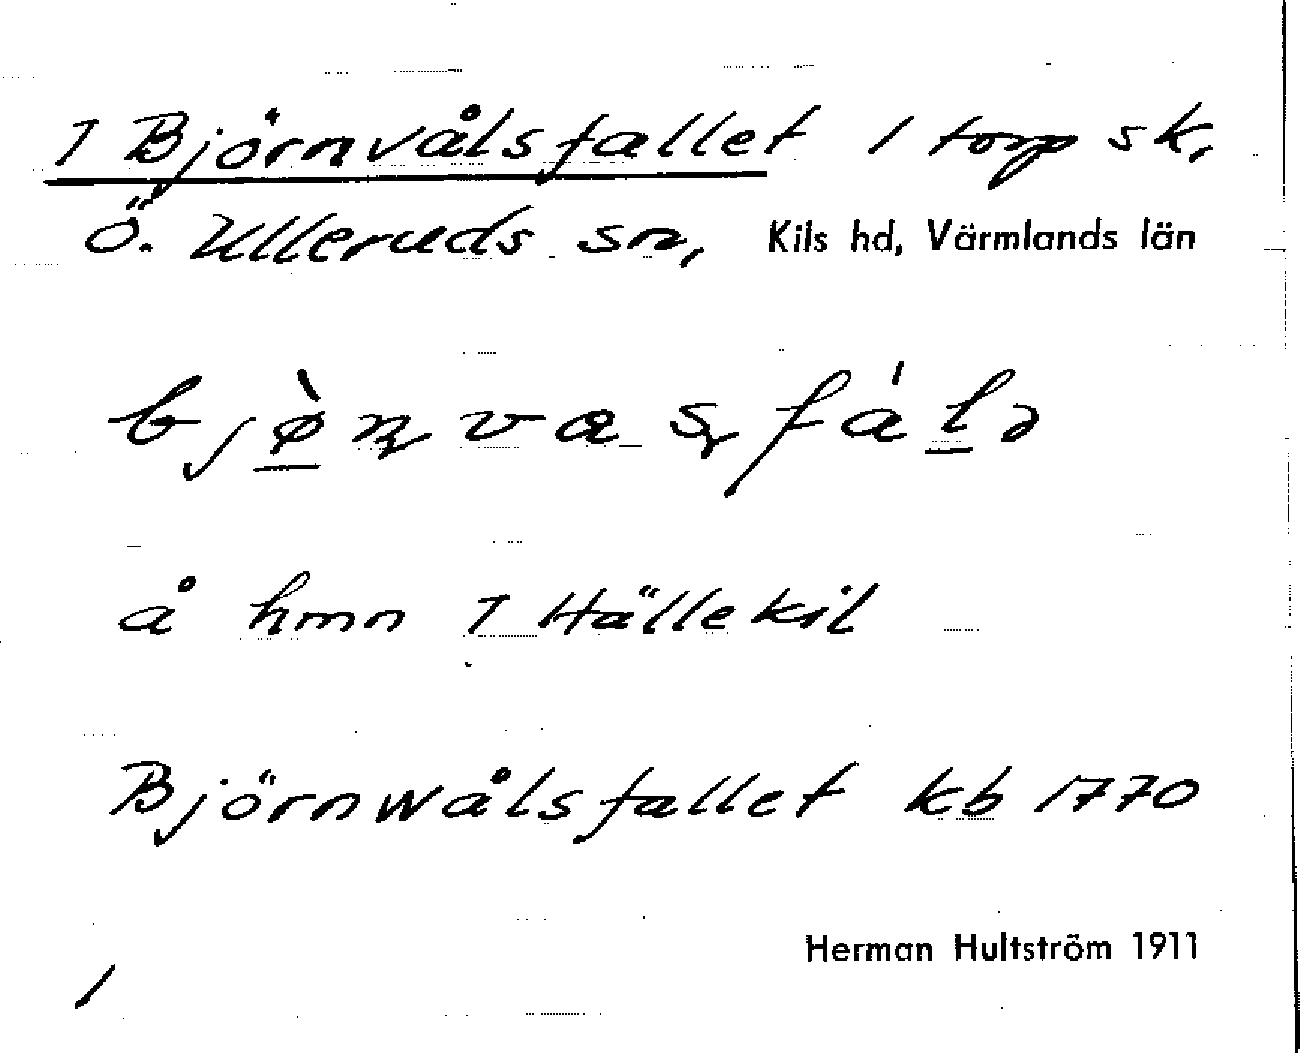 1 Björnvålsfallet / torp sk,
Ö. Ulleruds sn, Kils hd, Värmlands län
bjø̀ɳvaʂfálə
å hmn 1 Hällekil
Björnwålsfallet kb 1770
Herman Hultström 1911
/